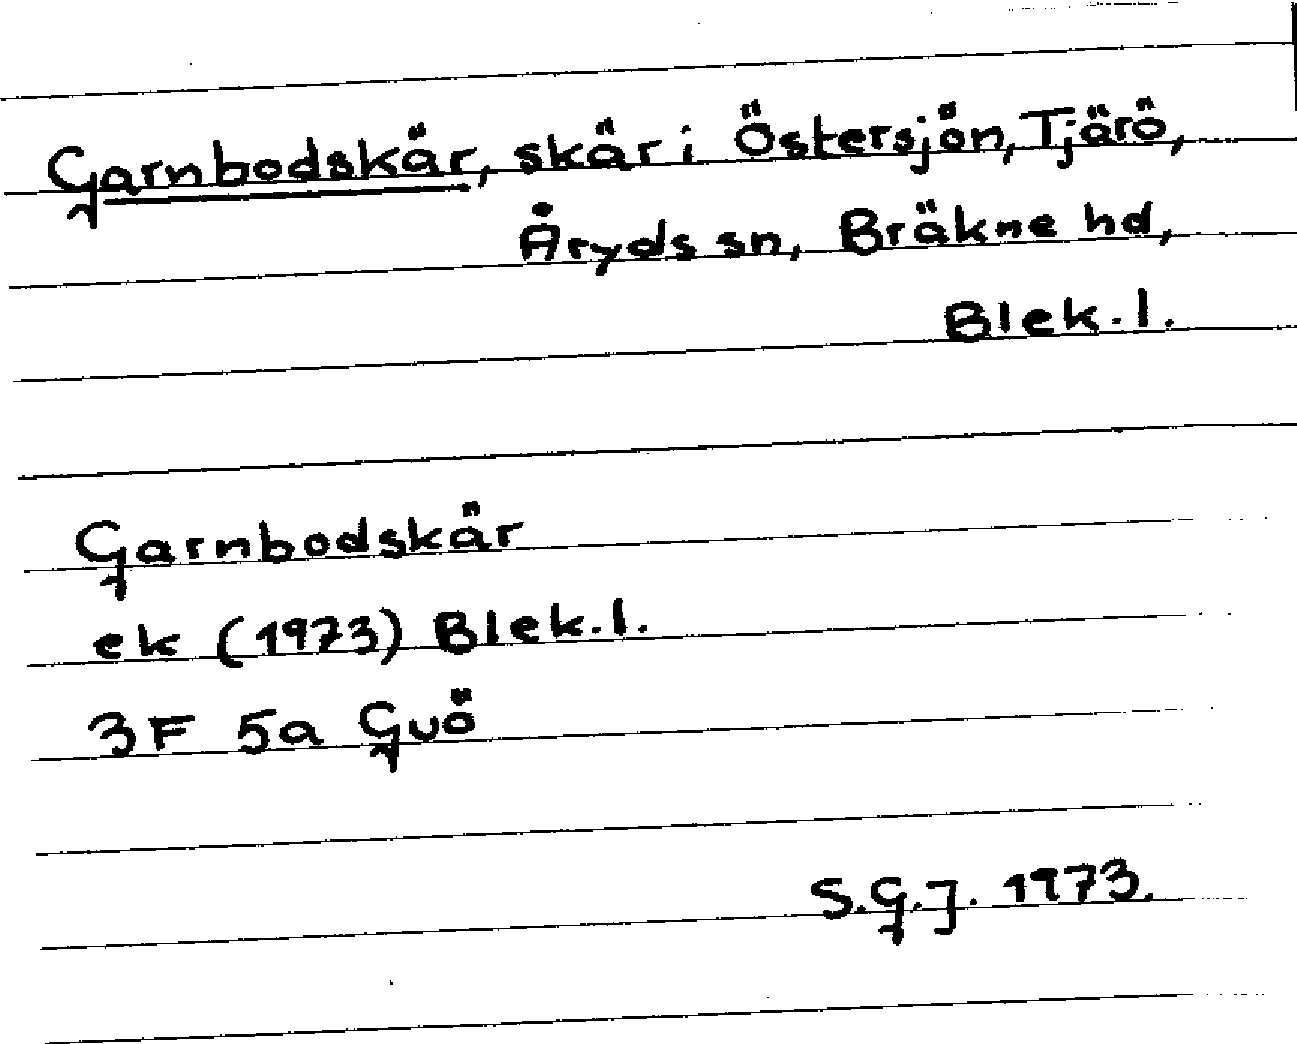 Garnbodskär, skär i Östersjön, Tjärö,
Åryds sn, Bräkne hd,
Blek. l.
Garnbodskär
ek (1973) Blek. l.
3F 5a Guö
S.G.J. 1973.